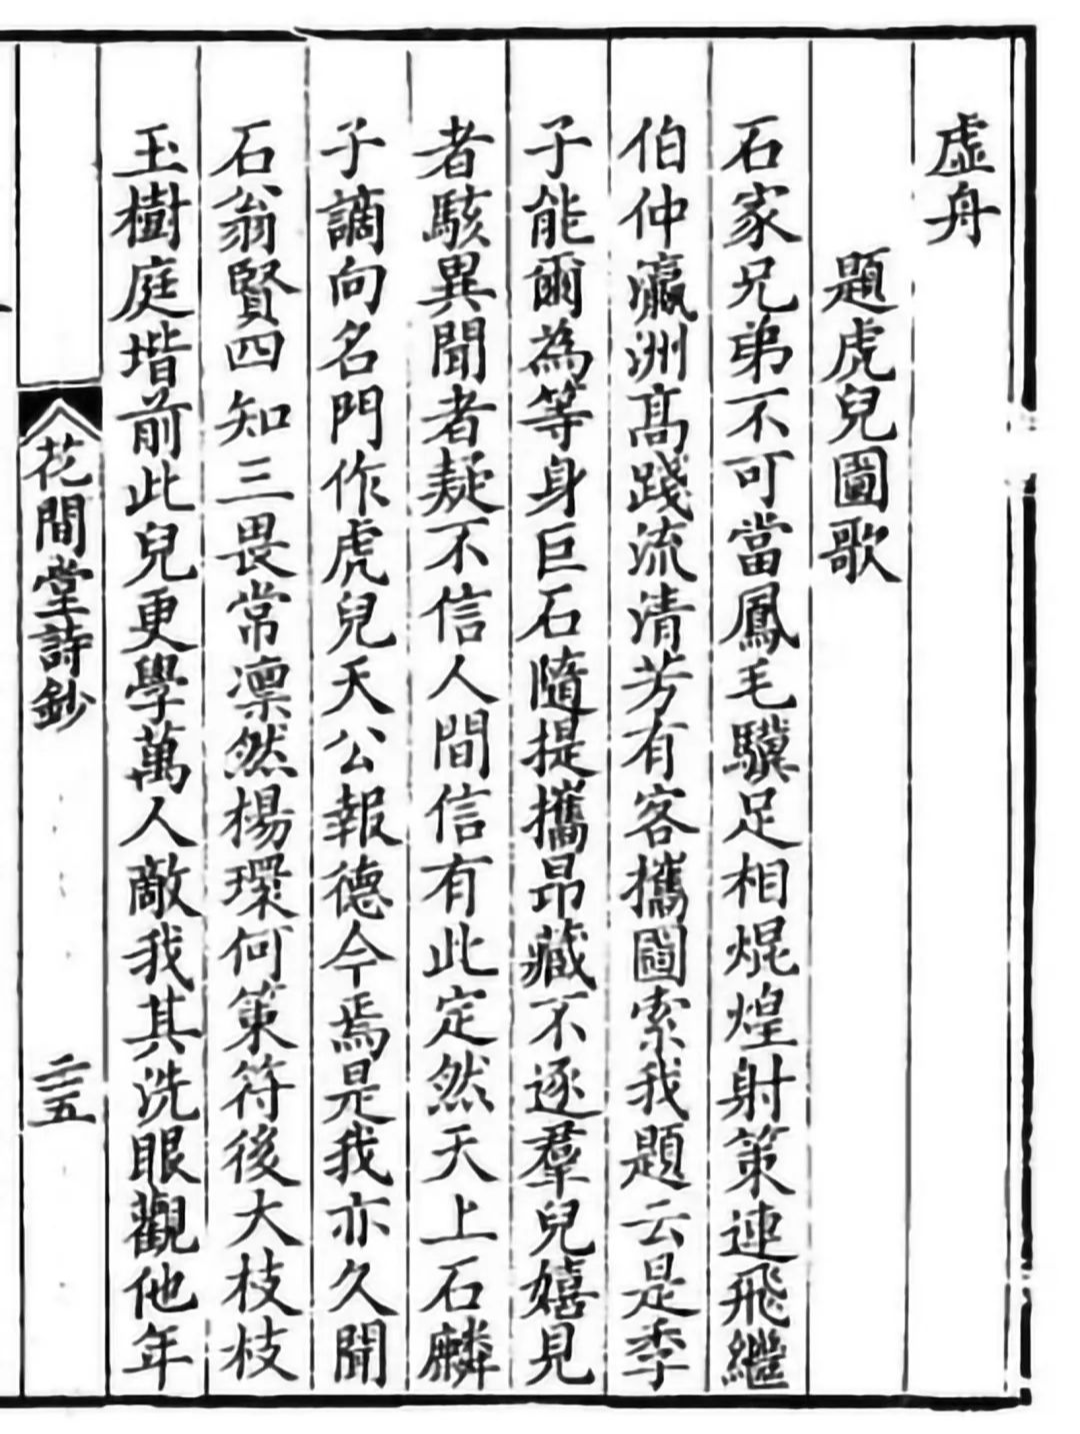 虛舟
題虎兒圖歌
石家兄弟不可當鳳毛驥足相焜煌射策連飛繼
伯仲瀛洲髙踐流清芳有客攜圖索我題云是季
子能爾為等身巨石隨提攜昂藏不逐羣兒嬉見
者駭異聞者疑不信人間信有此定然天上石麟
子謫向名門作虎兒天公報德今焉是我亦久聞
石翁賢四知三畏常凛然楊環何策符後大枝枝
玉樹庭堦前此兒更學萬人敵我其洗眼觀他年
花間堂詩鈔
二十五